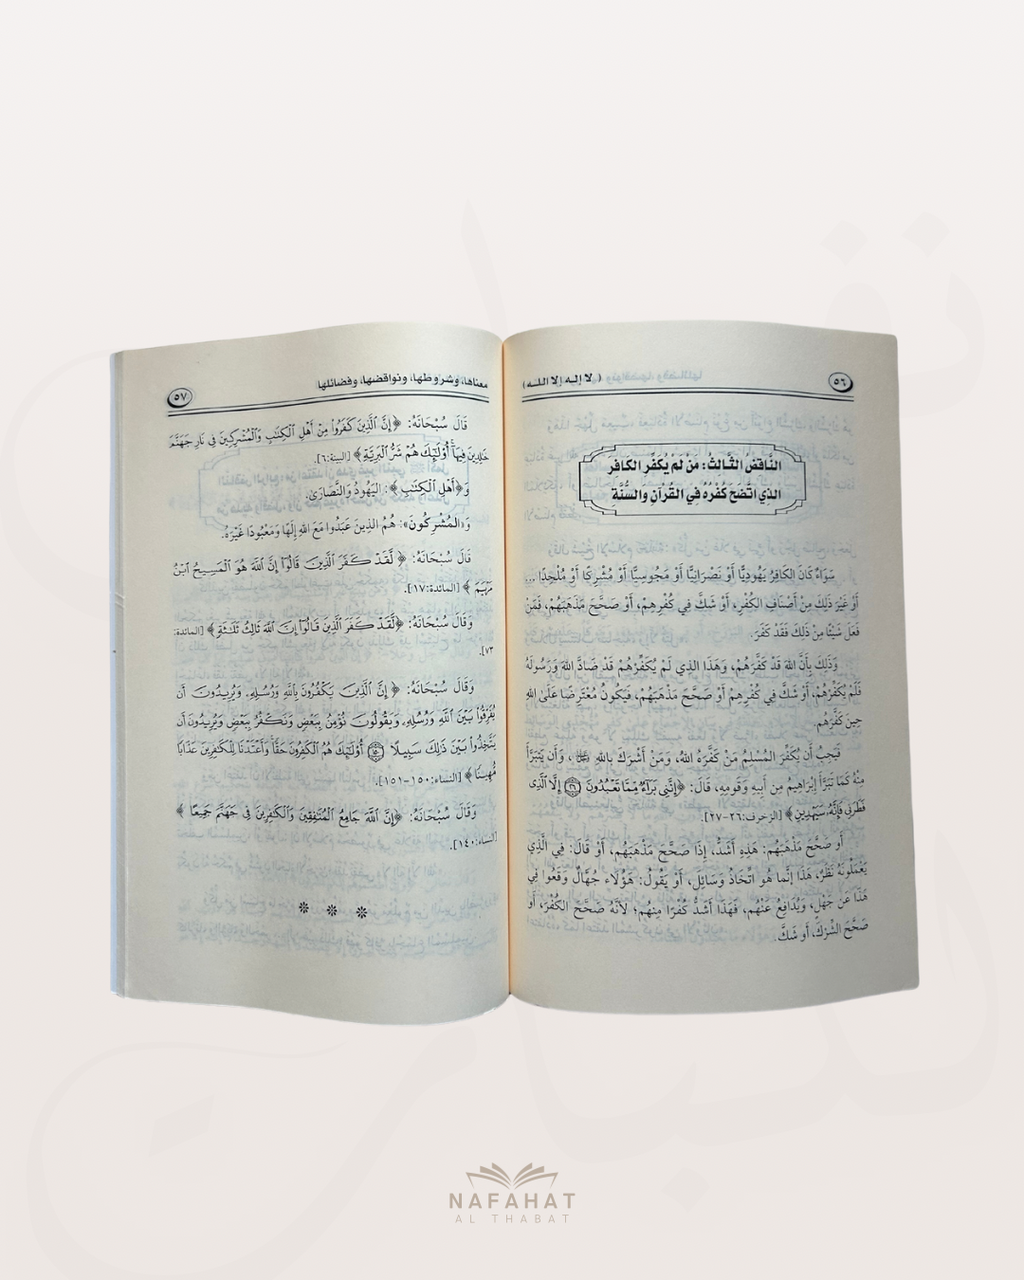 ٥٦
﴿ لا إله إلا الله ﴾
النَّاقِضُ الثَّالِثُ: مَنْ لَمْ يُكَفِّرِ الكَافِرَ
الذِي اتَّضَحَ كُفْرُهُ فِي القُرْآنِ والسُّنَّة
سَوَاءٌ كَانَ الكَافِرُ يَهُودِيًّا أَوْ نَصْرَانِيًّا أَوْ مَجُوسِيًّا أَوْ مُشْرِكًا أَوْ مُلْحِدًا ...
أَوْ غَيْرَ ذَلِكَ مِنْ أَصْنَافِ الكُفْرِ، أَوْ شَكَّ فِي كُفْرِهِمْ، أَوْ صَحَّحَ مَذْهَبَهُمْ، فَمَنْ
فَعَلَ شَيْئًا مِنْ ذَلِكَ فَقَدْ كَفَرَ.
وَذَلِكَ بِأَنَّ اللهَ قَدْ كَفَّرَهُمْ، وَهَذَا الذِي لَمْ يُكَفِّرْهُمْ قَدْ ضَادَّ اللهَ وَرَسُولَهُ
فَلَمْ يُكَفِّرْهُمْ، أَوْ شَكَّ فِي كُفْرِهِمْ أَوْ صَحَّحَ مَذْهَبَهُمْ، فَيَكُونُ مُعْتَرِضًا عَلَى اللهِ
حِينَ كَفَّرَهُم
فَيَجِبُ أَن يُكَفِّرَ المُسْلِمُ مَنْ كَفَّرَهُ اللهُ، وَمَنْ أَشْرَكَ بِاللهِ ﷻ، وَأَن يَتَبَرَّأَ
مِنْهُ كَمَا تَبَرَّأَ إِبْرَاهِيمُ مِن أَبِيهِ وَقَومِهِ، قَالَ: ﴿إِنَّنِى بَرَآءٌ مِّمَّا تَعْبُدُونَ ٢٦ إِلَّا ٱلَّذِى
فَطَرَنِى فَإِنَّهُۥ سَيَهْدِينِ﴾ [الزخرف:٢٦-٢٧].
أَو صَحَّحَ مَذْهَبَهُم: هَذِهِ أَشَدُّ، إِذَا صَحَّحَ مَذْهَبَهُم، أَوْ قَالَ: فِي الَّذِي
يَعْمَلُونَهُ نَظَرٌ، هَذَا إِنَّمَا هُو اتِّخَاذُ وَسَائِلَ، أَو يَقُولُ: هَؤُلَاءِ جُهَّالٌ وَقَعُوا فِي
هَذَا عَن جَهْلٍ، وَيُدَافِعُ عَنْهُم، فَهَذَا أَشَدُّ كُفْرًا مِنهُم؛ لِأَنَّهُ صَحَّحَ الكُفْرَ، أَو
صَحَّحَ الشِّرْكَ، أَو شَكَّ.
معناها، وشروطها، ونواقضها، وفضائلها
٥٧
قَالَ سُبْحَانَهُ: ﴿إِنَّ ٱلَّذِينَ كَفَرُوا۟ مِنْ أَهْلِ ٱلْكِتَٰبِ وَٱلْمُشْرِكِينَ فِى نَارِ جَهَنَّمَ
خَٰلِدِينَ فِيهَآ أُو۟لَٰٓئِكَ هُمْ شَرُّ ٱلْبَرِيَّةِ﴾ [البينة:٦].
وَ﴿أَهْلِ ٱلْكِتَٰبِ﴾: اليَهُودُ وَالنَّصَارَى.
وَ«المُشْرِكُونَ»: هُمُ الذِينَ عَبَدُوا مَعَ اللهِ إِلَهًا وَمَعْبُودًا غَيْرَهُ.
قَالَ سُبْحَانَهُ: ﴿ لَّقَدْ كَفَرَ ٱلَّذِينَ قَالُوٓا۟ إِنَّ ٱللَّهَ هُوَ ٱلْمَسِيحُ ٱبْنُ
مَرْيَمَ ﴾ [المائدة:١٧].
وَقَالَ سُبْحَانَهُ: ﴿لَّقَدْ كَفَرَ ٱلَّذِينَ قَالُوٓا۟ إِنَّ ٱللَّهَ ثَالِثُ ثَلَٰثَةٍ﴾ [المائدة:
٧٣].
وَقَالَ سُبْحَانَهُ: ﴿ إِنَّ ٱلَّذِينَ يَكْفُرُونَ بِٱللَّهِ وَرُسُلِهِۦ وَيُرِيدُونَ أَن
يُفَرِّقُوا۟ بَيْنَ ٱللَّهِ وَرُسُلِهِۦ وَيَقُولُونَ نُؤْمِنُ بِبَعْضٍ وَنَكْفُرُ بِبَعْضٍ وَيُرِيدُونَ أَن
يَتَّخِذُوا۟ بَيْنَ ذَٰلِكَ سَبِيلًا ١٥٠ أُو۟لَٰٓئِكَ هُمُ ٱلْكَٰفِرُونَ حَقًّا وَأَعْتَدْنَا لِلْكَٰفِرِينَ عَذَابًا
مُّهِينًا﴾ [النساء:١٥٠-١٥١].
وَقَالَ سُبْحَانَهُ: ﴿إِنَّ ٱللَّهَ جَامِعُ ٱلْمُنَٰفِقِينَ وَٱلْكَٰفِرِينَ فِى جَهَنَّمَ جَمِيعًا ﴾
[النساء:١٤٠].
* * *
NAFAHAT
AL THABAT